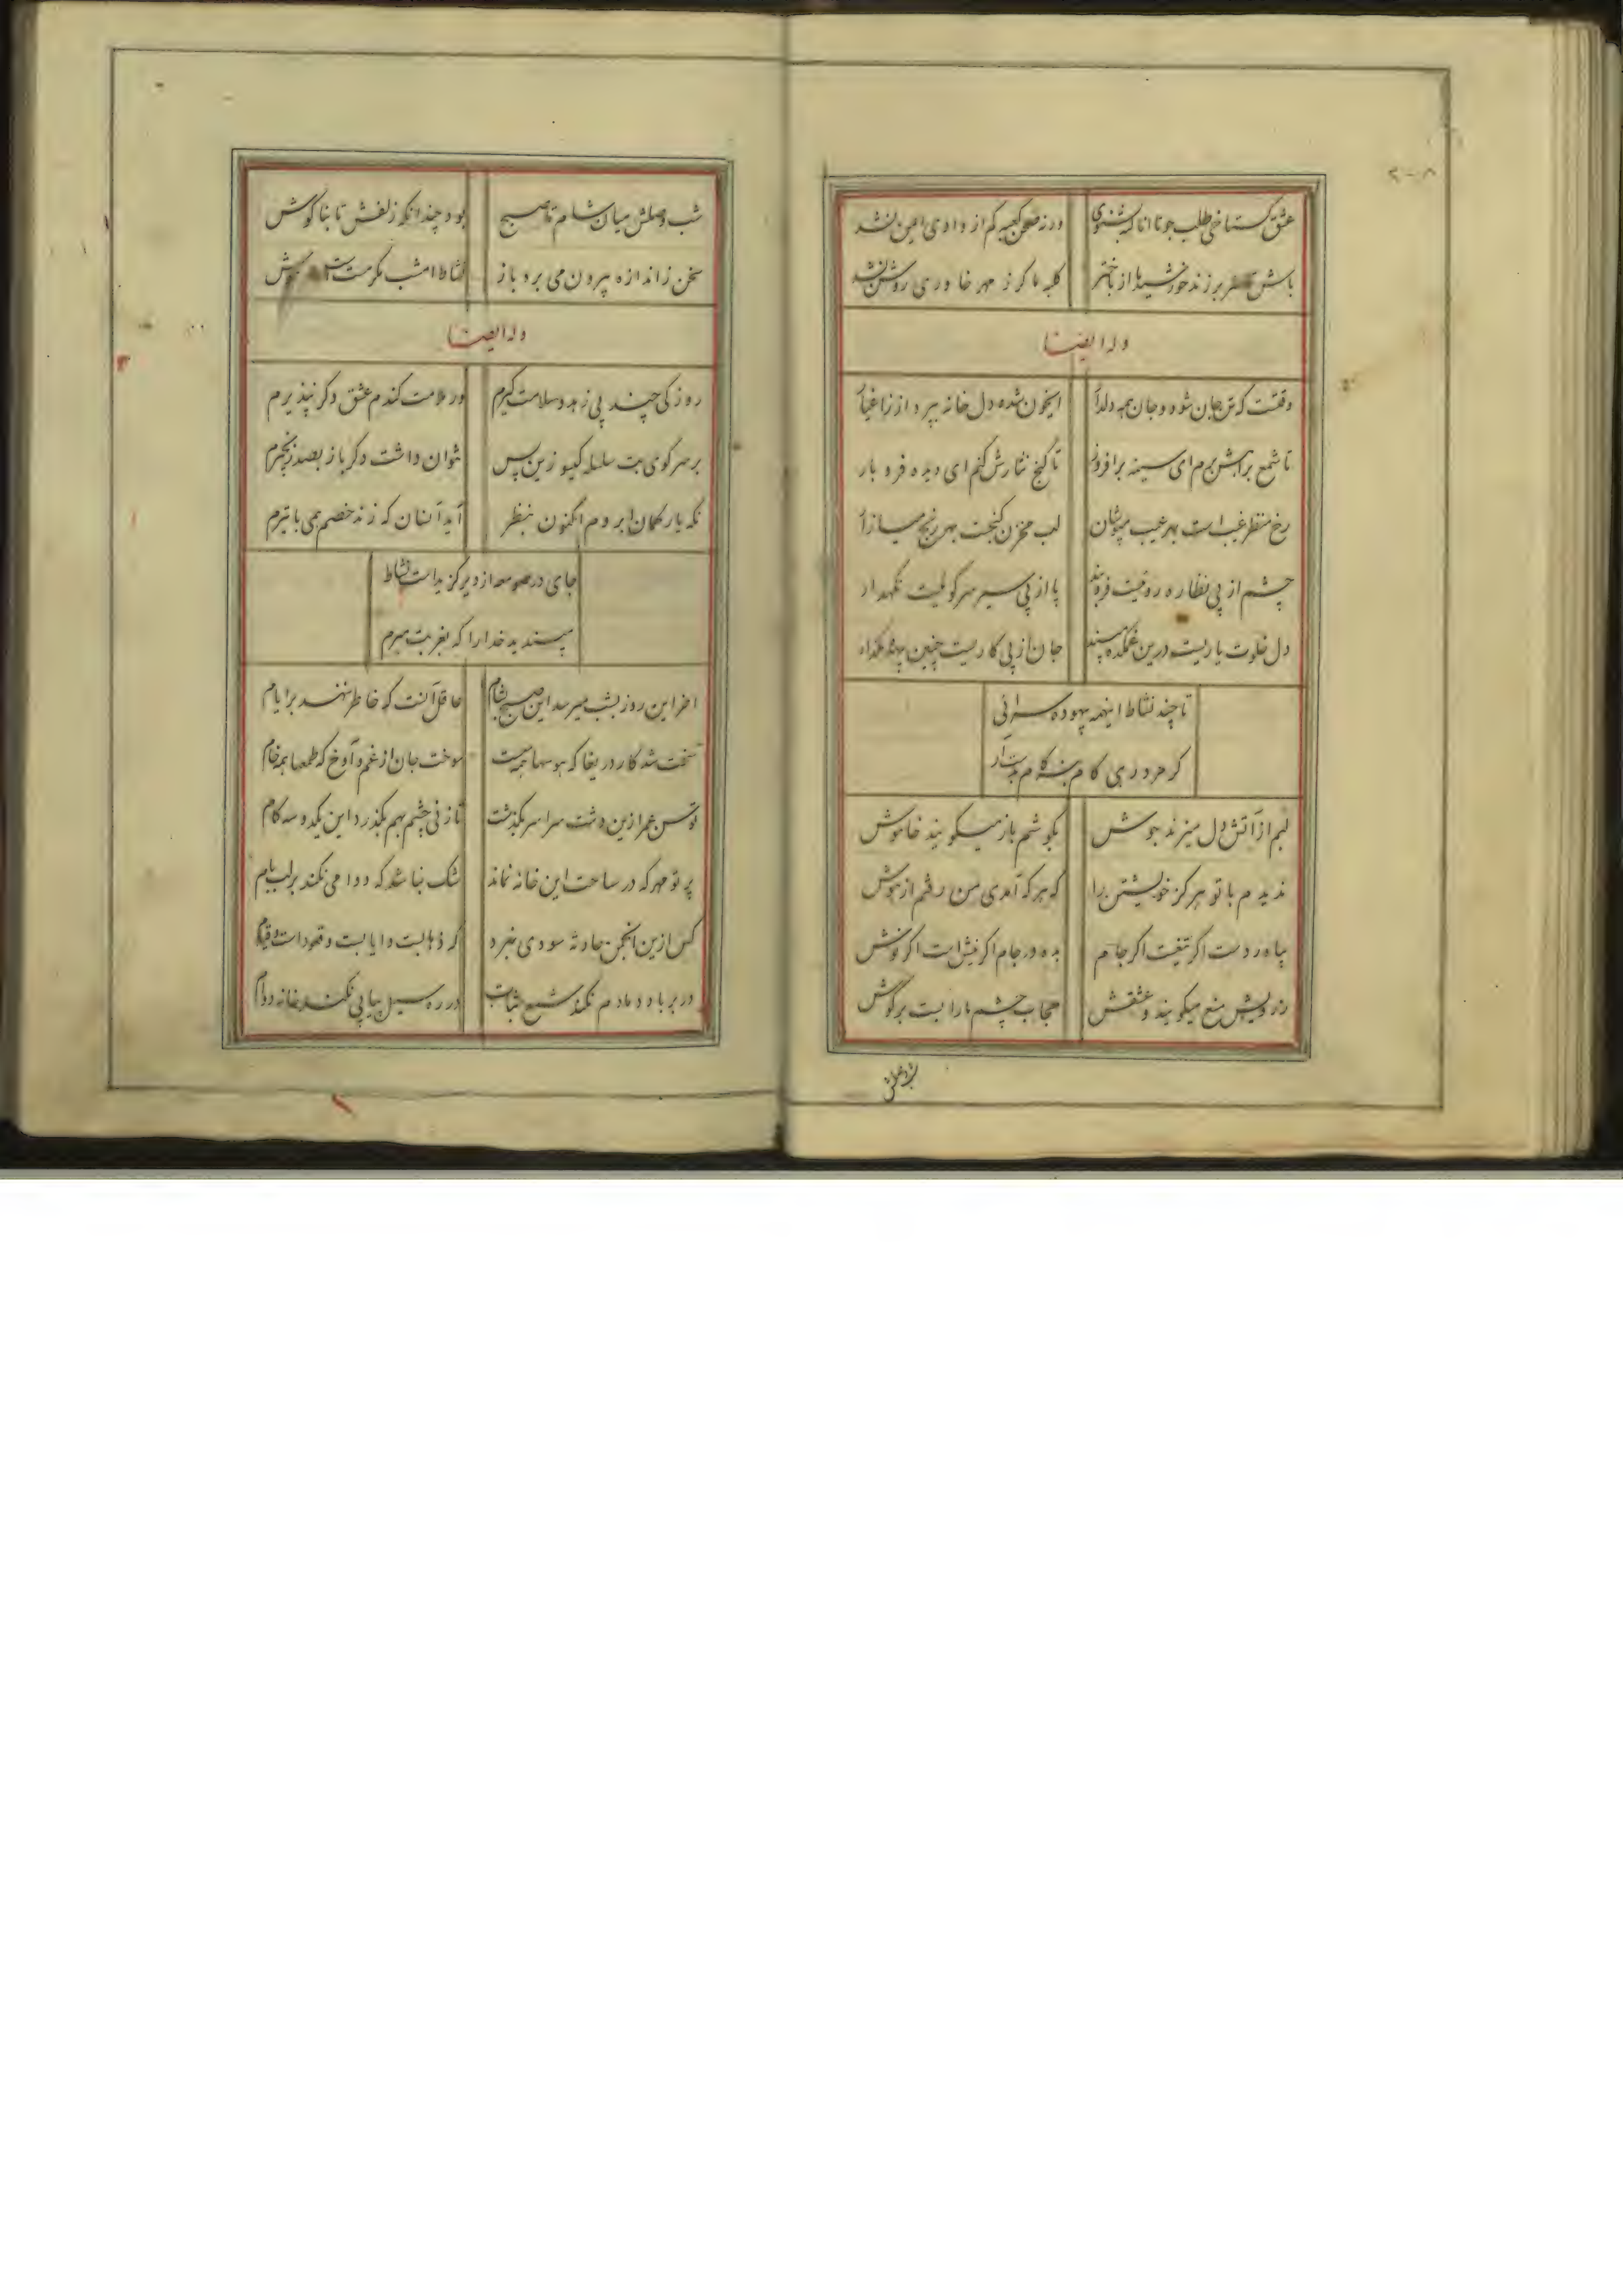 ۲۰۸
عشق گستاخی طلب جو تا انا کبشنوی ورنه صحن کعبه کم از وادی ایمن نشد
باش تا سر برزند خورشید ما از باختر کلبه ما گر ز مهر خاوری روشن نشد
وله ایضا
وقتست که تن جان شود و جان همه دلدار ای خون شده دل خانه بپرداز ز اغیار
تا شمع براهش برم ای سینه برافروز تا گنج نثارش کنم ای دیده فرو بار
رخ منظر غیب است بهر عیب مپوشان لب مخزن گنجست بهر رنج میازار
چشم از پی نظاره روئیست فروبند پا از پی سیر سر کوئیست نگهدار
دل خلوت یاریست درین غمکده مپسند جان از پی کاریست چنین بیهده مگذار
تا چند نشاط اینهمه بیهوده سرائی
گر مرد رهی کام بنه گام بدست آر
لبم از آتش دل میزند جوش بگوشم باز میگویند خاموش
ندیدم با تو هرگز خویشتن را که هر گه آمدی من رفتم از هوش
بیاور دست اگر تیغست اگر جام بده در جام اگر نیش است اگر نوش
ز درویش منع میگویند و عشقش حجاب چشم ما را بست بر گوش
شب وصلش
شب وصلش میان شام تا صبح بود چندانکه زلفش تا بناگوش
سخن ز اندازه بیرون می برد باز نشاط امشب مگر مست
وله ایضا
روزکی چند پی زهد و سلامت گیرم ور ملامت کندم عشق دگر نپذیرم
بر سر کوی بت سلسله گیسو زین پس نتوان داشت دگر باز بصد زنجیرم
نگه یار کمان ابرویم اکنون بنظر آید آنسان که زند خصم همی با تیرم
جای در صومعه از دیر گزیدست نشاط
مپسندید خدا را که بغربت میرم
آخر این روز بشب میرسد این صبح بشام عاقل آنست که خاطر ننهد بر ایام
سخت شد کار دریغا که هوسها همه سست سوخت جان از غم و آوخ که طمعها همه خام
توسن عمر ازین دشت سراسر بگذشت تا زنی چشم بهم بگذرد این یکدو سه گام
پرتو مهر که در ساحت این خانه نماند شک نباشد که دوامی نکند بر لب بام
کس ازین انجمن حادثه سودی نبرد که ذهابست و ایابست و قعود است و قیام
در بر باد دمادم نکند شمع ثبات در ره سیل پیاپی نکند خانه دوام